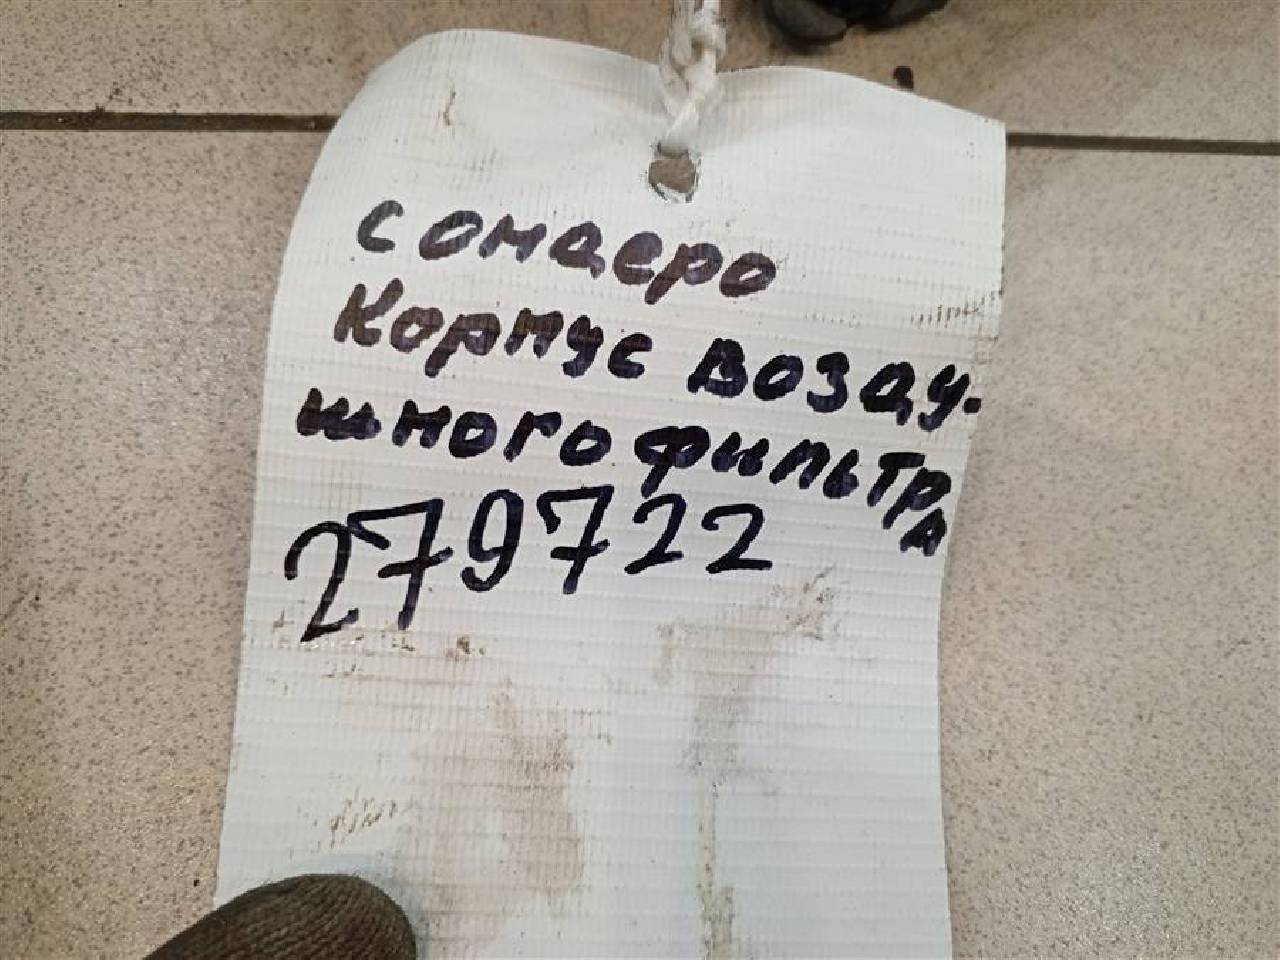 сондеро
Корпус возду-
шного фильтра
279722